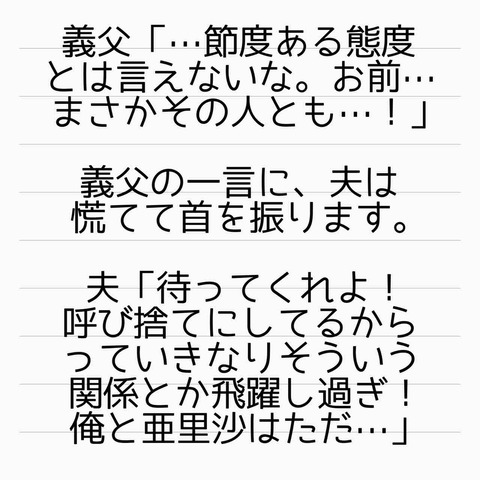 義父「…節度ある態度
とは言えないな。お前…
まさかその人とも…！」
義父の一言に、夫は
慌てて首を振ります。
夫「待ってくれよ！
呼び捨てにしてるから
っていきなりそういう
関係とか飛躍し過ぎ！
俺と亜里沙はただ…」